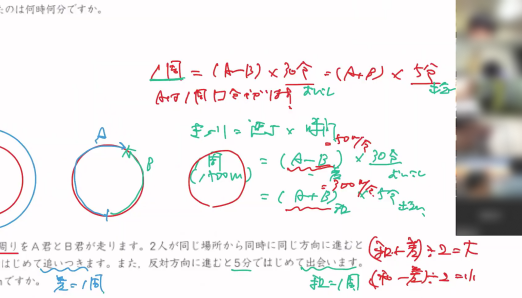 たのは何時何分ですか。
1周 = (A-B) × 30分 = (A+B) × 5分
おいこし
出会
Aは1周
道のり = 速さ × 時間
A
B
= 50m/分
1周 = (A-B) × 30分
(1500m)
差
おいこし
= 300m/分
= (A+B) × 5分
和
出会い
周りをA君とB君が走ります。2人が同じ場所から同時に同じ方向に進むと
(和+差)÷2=大
はじめて追いつきます。また、反対方向に進むと5分ではじめて出会います。
(和-差)÷2=小
ですか。
差=1周
和=1周